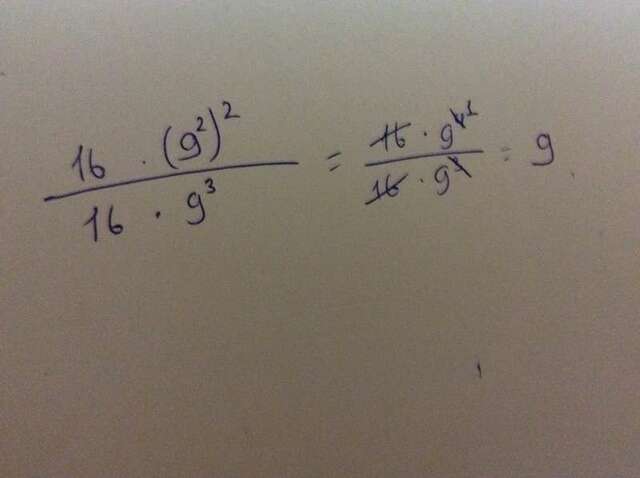 16 · (9²)² / 16 · 9³ = 16 · 9⁴ ¹ / 16 · 9³ = 9